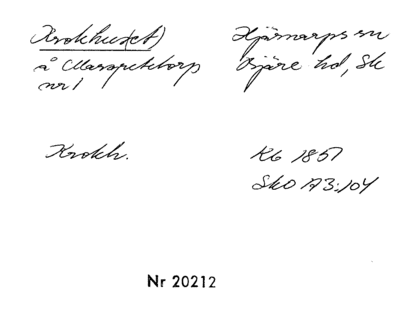 Krokhus(et)
å Margretetorp
nr 1
Hjärnarps sn
Bjäre hd, Sk
Krokh.
Kb 1857
SkO A3:104
Nr 20212